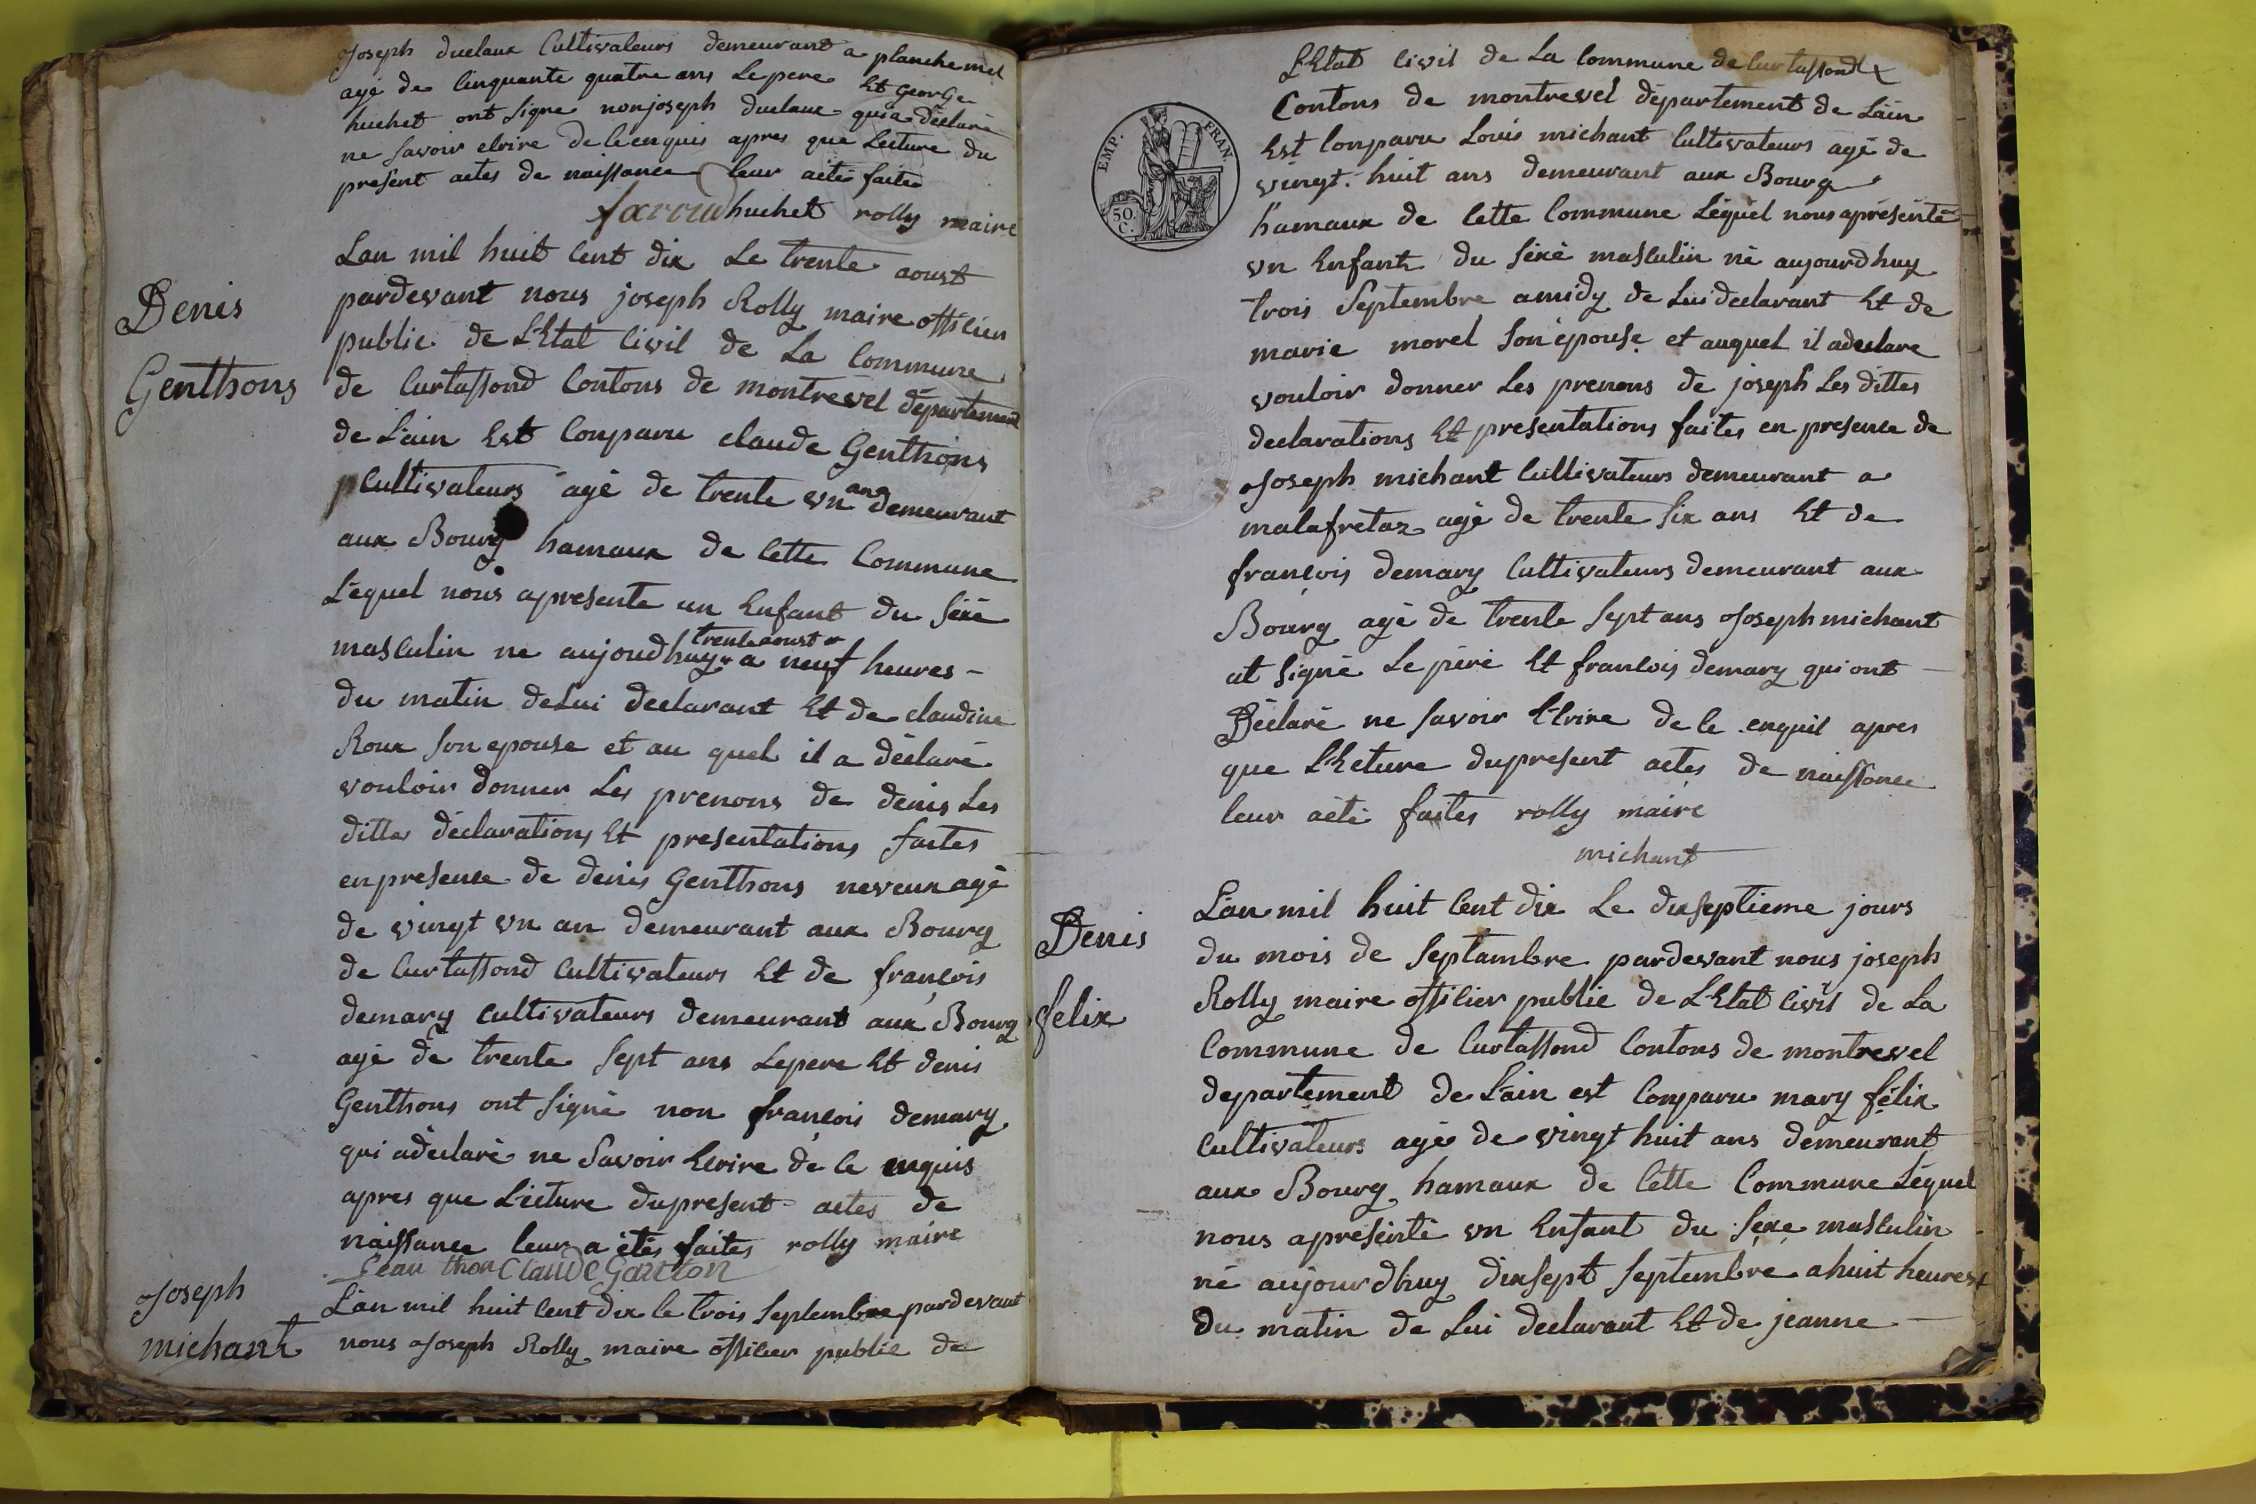 Joseph duclaux Cultivateurs demeurant a planchemel
agé de Cinquante quatre ans Le pere Et George
huchet ont signe non joseph duclaux qui a déclaré
ne savoir elrire de le enquis apres que Lecture du
present actes de naissance leur aété faites
huchet rolly maire
Lan mil huit Cent dix Le trente aoust
pardevant nous joseph Rolly maire officier
public de L'Etat Civil de La Commune
de Curtassond Contons de montrevel département
de L'ain Est Conparu claude Genthons
Cultivateurs agé de trente un ans demeurant
aux Bourg hamaux de Cette Commune
Léquel nous apresente un Enfant du séxé
trente aoust
masculin ne aujoudhuy a neuf heures -
du matin de Lui declarant Et de claudine
Roux son epouse et au quel il a déclaré
vouloir donner Les prenons de denis Les
ditte déclarations Et presentations faites
en presense de denis Genthons neveux agé
de vingt un an demeurant aux Bourg
de Curtassond Cultivateurs Et de françois
demary Cultivateurs demeurant aux Bourg
agé de trente sept ans Le pere Et denis
Genthons ont signé non françois demary
qui adéclaré ne Savoir Ecrire de le enquis
apres que Lécture dupresent actes de
naissance leur a étés faites rolly maire
Claude Ganton
L'an mil huit Cent dix le trois Septembre pardevant
nous Joseph Rolly maire officier public de
Denis
Genthons
Joseph
michant
L'Etat Civil de La Commune de Curtassond
Contons de montrevel département de L'ain
Est Conparu Louis michant Cultivateurs agé de
vingt huit ans demeurant aux Bourg
hamaux de Cette Commune Léquel nous apréşénté
un Enfant du séxé masculin né aujourdhuy
trois Septembre amidy de Lui declarant Et de
marie morel son épouse et auquel il adeclare
vouloir donner Les prenons de joseph Les dittes
declarations Et presentations faites en presense de
Joseph michant Cultivateurs demeurant a
malafretaz agé de trente six ans Et de
françois demary Cultivateurs demeurant aux
Bourg agé de trente sept ans Joseph michant
at signé Le péré Et françois demary qui ont
Déclaré ne savoir Ecrire de le enquit apres
que Lecture dupresent actes de naissance
leur aété faites rolly maire
michant
L'an mil huit Cent dix Le dixseptieme jours
du mois de Septambre pardevant nous joseph
Rolly maire officier public de L'Etat Civil de La
Commune de Curtassond Contons de montrevel
departement de L'ain est Conparu mary félix
Cultivateurs agé de vingt huit ans demeurant
aux Bourg hamaux de Cette Commune Léquel
nous apréşénté un Enfant du séxe masculin
né aujourdhuy dixsept Septembre a huit heures
du matin de Lui declarant Et de jeanne
Denis
felix
EMP. FRAN.
50.
C.